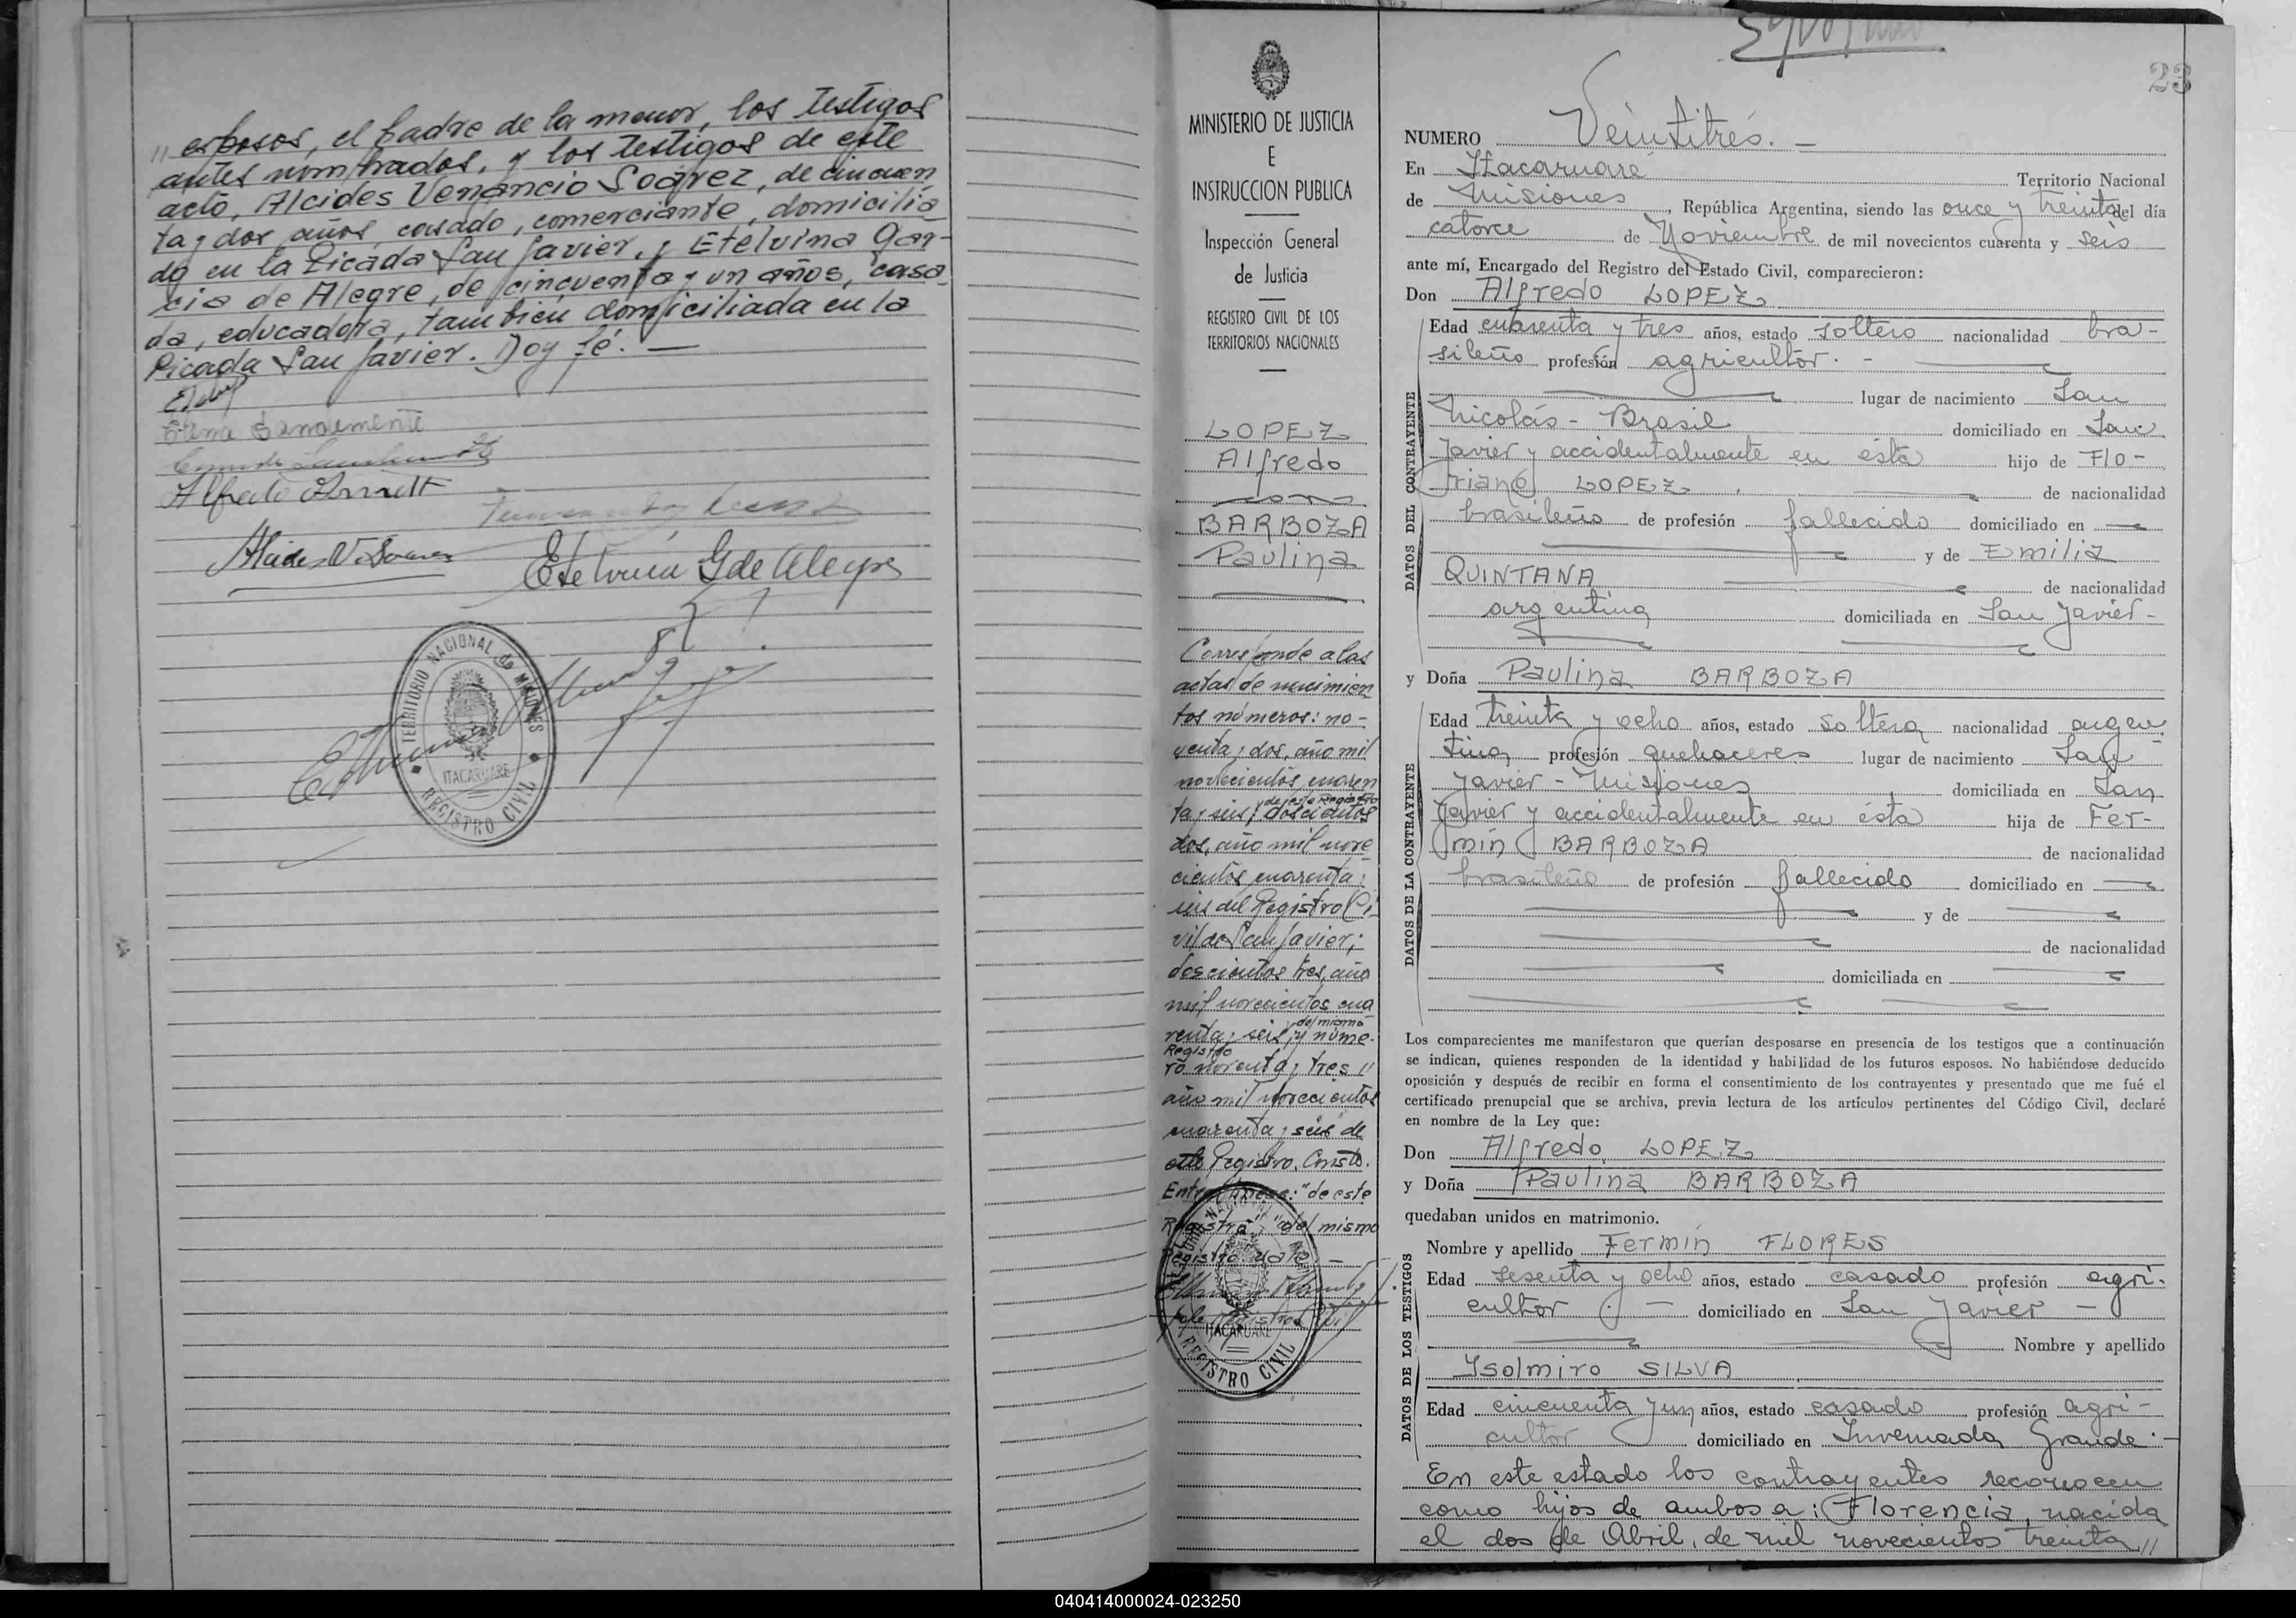 " esposos, el padre de la menor, los testigos
antes nombrados, y los testigos de este
acto, Alcides Venancio Soárez, de cincuen
ta y dos años, casado, comerciante, domicilia
do en la Picada San Javier, y Etelvina Gar-
cia de Alegre, de cincuenta y un años, casa
da, educadora, también domiciliada en la
Picada San Javier. Doy fé. —
Alfredo
Etelvina G de Alegre
TERRITORIO NACIONAL de MISIONES
ITACARUARE
REGISTRO CIVIL
MINISTERIO DE JUSTICIA
E
INSTRUCCION PUBLICA
Inspección General
de Justicia
REGISTRO CIVIL DE LOS
TERRITORIOS NACIONALES
LOPEZ
Alfredo
con
BARBOZA
Paulina
Corresponde a las
actas de nacimien
tos números: no-
venta y dos, año mil
novecientos cuaren
ta y seis, de este Registro doscientos
dos, año mil nove
cientos cuarenta y
seis del Registro Ci
vil de San Javier;
doscientos tres, año
mil novecientos cua
renta y seis, del mismo Registro y núme-
ro noventa y tres "
año mil novecientos
cuarenta y seis de
este Registro. Consto.
Entre líneas: "de este
Registro", "del mismo
Registro" Vale —
ITACARUARE
REGISTRO CIVIL
23
NUMERO Veintitrés. —
En Itacaruaré Territorio Nacional
de Misiones, República Argentina, siendo las once y treinta del día
catorce de Noviembre de mil novecientos cuarenta y seis
ante mí, Encargado del Registro del Estado Civil, comparecieron:
Don Alfredo LOPEZ
DATOS DEL CONTRAYENTE
Edad cuarenta y tres años, estado soltero nacionalidad bra-
sileño profesión agricultor. -
lugar de nacimiento San
Nicolás - Brasil domiciliado en San
Javier y accidentalmente en ésta hijo de Flo-
riano LOPEZ, de nacionalidad
brasileño de profesión fallecido domiciliado en —
y de Emilia
QUINTANA de nacionalidad
argentina domiciliada en San Javier-
y Doña Paulina BARBOZA
DATOS DE LA CONTRAYENTE
Edad treinta y ocho años, estado soltera nacionalidad argen
tina profesión quehaceres lugar de nacimiento San
Javier - Misiones domiciliada en San
Javier y accidentalmente en ésta hija de Fer-
mín BARBOZA de nacionalidad
brasileño de profesión fallecido domiciliado en —
y de —
de nacionalidad
domiciliada en —
Los comparecientes me manifestaron que querían desposarse en presencia de los testigos que a continuación
se indican, quienes responden de la identidad y habilidad de los futuros esposos. No habiéndose deducido
oposición y después de recibir en forma el consentimiento de los contrayentes y presentado que me fué el
certificado prenupcial que se archiva, previa lectura de los artículos pertinentes del Código Civil, declaré
en nombre de la Ley que:
Don Alfredo LOPEZ
y Doña Paulina BARBOZA
quedaban unidos en matrimonio.
DATOS DE LOS TESTIGOS
Nombre y apellido Fermín FLORES
Edad sesenta y ocho años, estado casado profesión agri-
cultor. — domiciliado en San Javier —
Nombre y apellido
Isolmiro SILVA
Edad cincuenta y un años, estado casado profesión agri-
cultor domiciliado en Invernada Grande. -
En este estado los contrayentes reconocen
como hijos de ambos a: Florencia, nacida
el dos de Abril, de mil novecientos treinta "
040414000024-023250